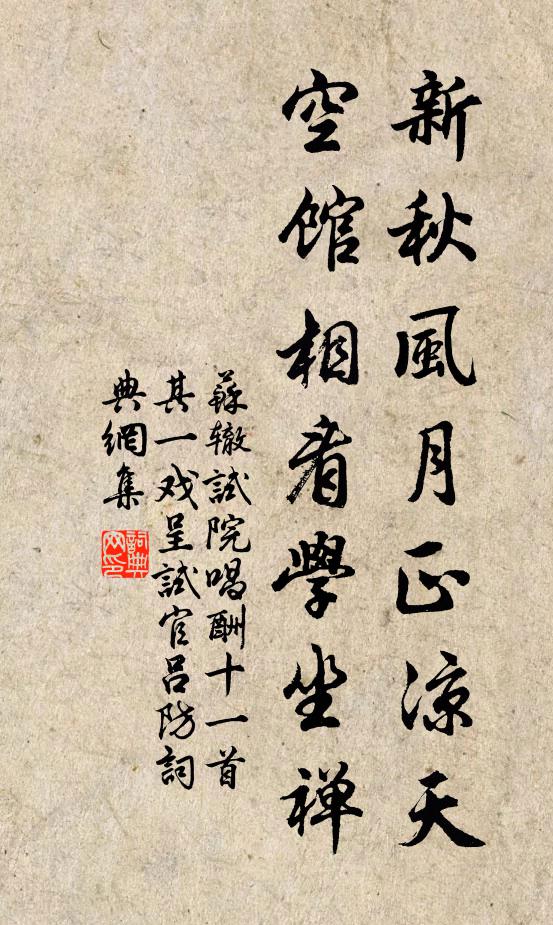 新秋風月正凉天
空馆相看學坐禅
蘇辙試院唱酬十一首
其一戏呈試官吕防詞
典網集
詞典网印